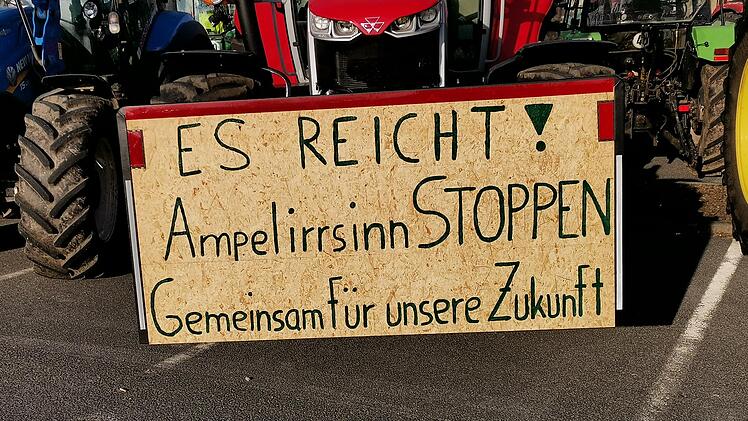 ES REICHT!
Ampelirrsinn STOPPEN
Gemeinsam für unsere Zukunft